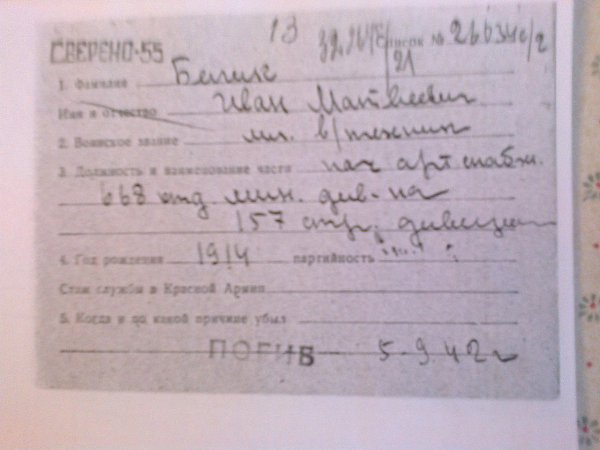 13
СВЕРЕНО-55 Список № 26034с/2
21
1. Фамилия
Имя и отчество Иван Матвеевич
2. Воинское звание мл. в/техник
3. Должность и наименование части нач арт снабж.
668 отд. мин. див-на
157 стр. дивизии
4. Год рождения 1914 партийность
Стаж службы в Красной Армии
5. Когда и по какой причине убыл
ПОГИБ 5-9 42 г